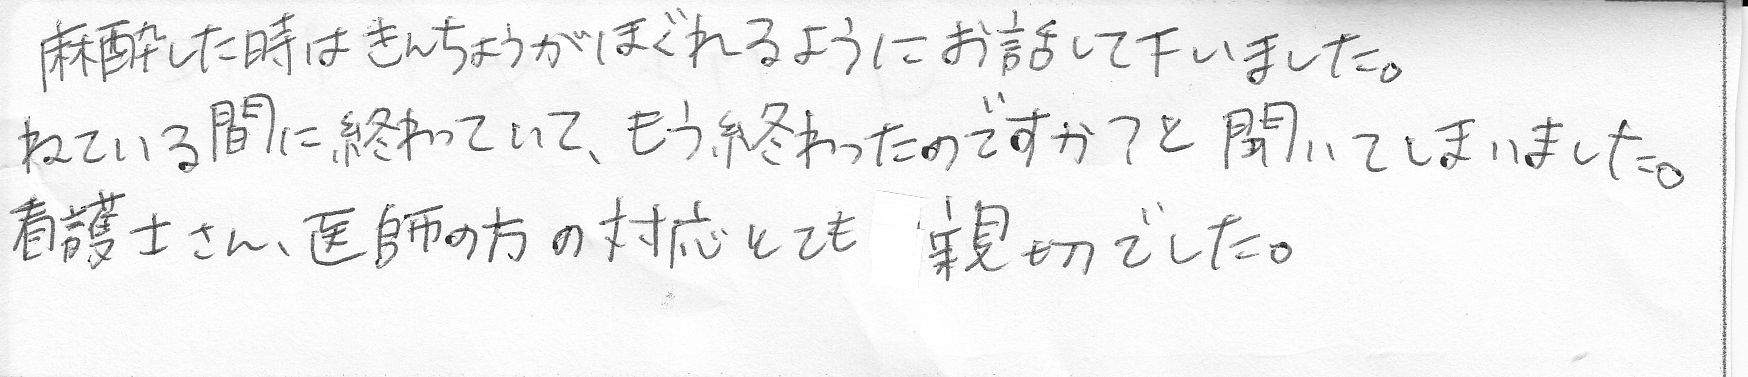 麻酔した時はきんちょうがほぐれるようにお話して下いました。
ねている間に終わっていて、もう終わったのですか?と聞いてしまいました。
看護士さん、医師の方の対応とても 親切でした。